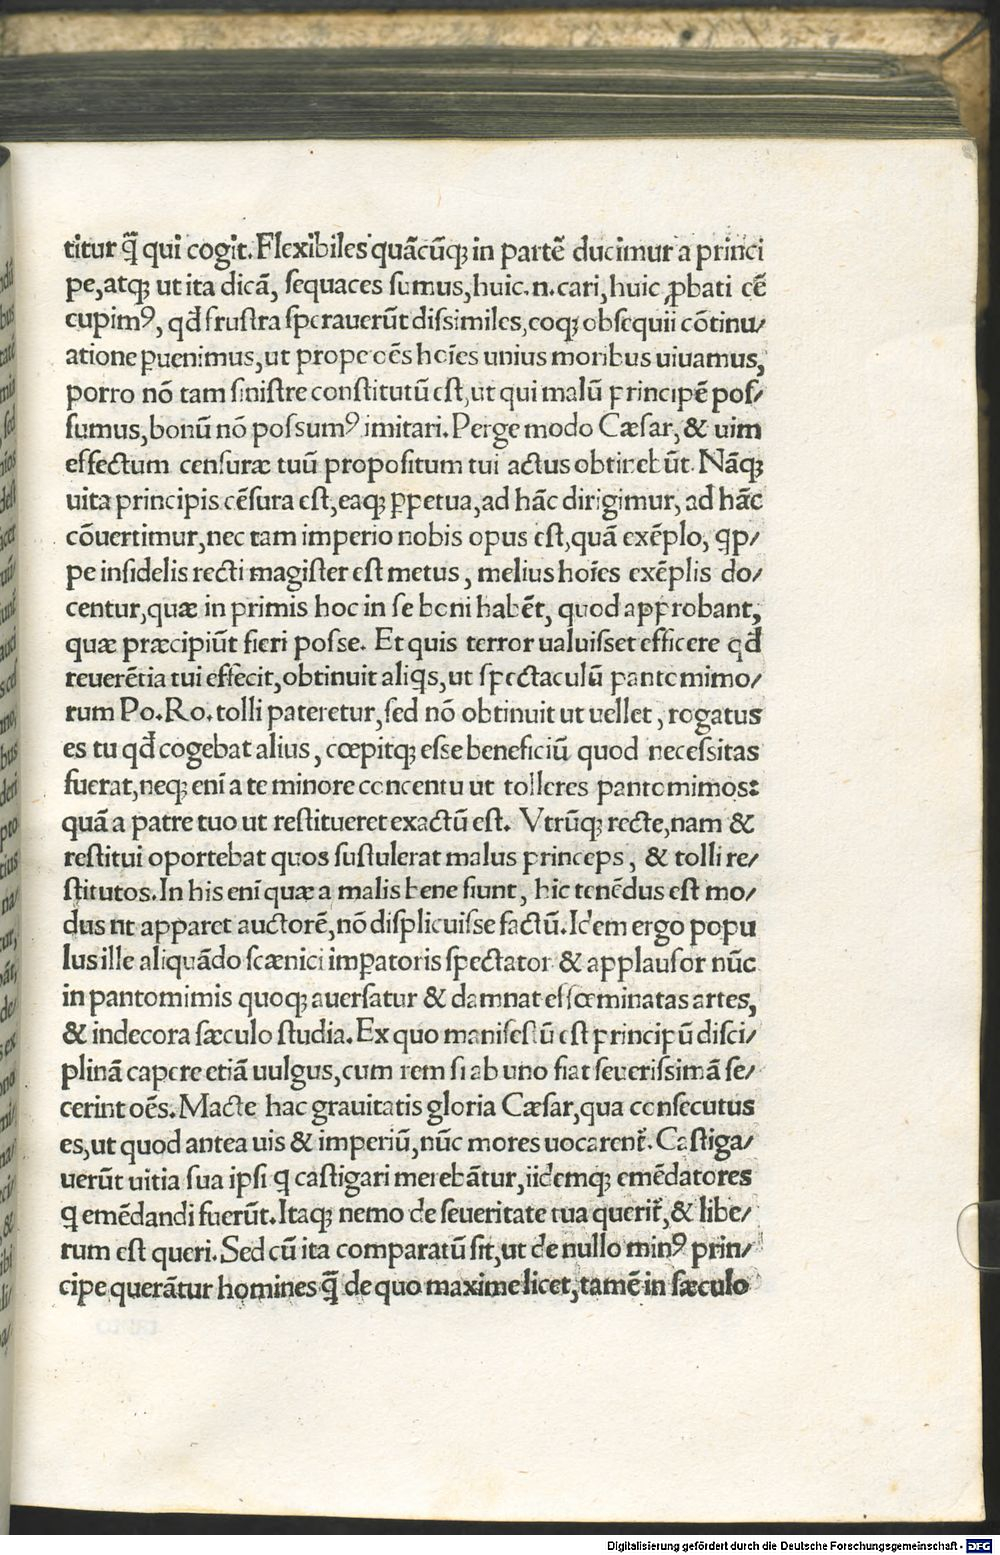 titur q̃ qui cogit. Flexibiles quãcũqꝫ in partẽ ducimur a princi
pe, atqꝫ ut ita dicã, sequaces sumus, huic .n. cari, huic ꝓbati eẽ
cupimꝰ, qđ frustra sperauerũt dissimiles, eoqꝫ obsequii cõtinu/
atione ꝑuenimus, ut prope oẽs hoĩes unius moribus uiuamus,
porro nõ tam sinistre constitutũ est, ut qui malũ principẽ pos/
sumus, bonũ nõ possumꝰ imitari. Perge modo Cæsar, & uim
effectum censuræ tuũ propositum tui actus obtinebũt. Nãqꝫ
uita principis cẽsura est, eaqꝫ ꝑpetua, ad hãc dirigimur, ad hãc
cõuertimur, nec tam imperio nobis opus est, quã exẽplo, qp/
pe infidelis recti magister est metus, melius hoĩes exẽplis do/
centur, quæ in primis hoc in se boni habẽt, quod approbant,
quæ præcipiũt fieri posse. Et quis terror ualuisset efficere qđ
reuerẽtia tui effecit, obtinuit aliqs, ut spectaculũ pantomimo/
rum Po. Ro. tolli pateretur, sed nõ obtinuit ut uellet, rogatus
es tu qđ cogebat alius, cœpitqꝫ esse beneficiũ quod necessitas
fuerat, neqꝫ enĩ a te minore concentu ut tolleres pantomimos:
quã a patre tuo ut restitueret exactũ est. Vtrũqꝫ recte, nam &
restitui oportebat quos sustulerat malus princeps, & tolli re/
stitutos. In his enĩ quæ a malis bene fiunt, hic tenẽdus est mo/
dus ut apparet auctorẽ, nõ displicuisse factũ. Idem ergo popu
lus ille aliquãdo scænici imꝑatoris spectator & applausor nũc
in pantomimis quoqꝫ auersatur & damnat effœminatas artes,
& indecora sæculo studia. Ex quo manifestũ est principũ disci/
plinã capere etiã uulgus, cum rem si ab uno fiat seuerissimã fe/
cerint oẽs. Macte hac grauitatis gloria Cæsar, qua consecutus
es, ut quod antea uis & imperiũ, nũc mores uocarent̃. Castiga/
uerũt uitia sua ipsi q castigari merebãtur, iidemqꝫ emẽdatores
q emẽdandi fuerũt. Itaqꝫ nemo de seueritate tua querit̃, & libe/
rum est queri. Sed cũ ita comparatũ sit, ut de nullo minꝰ prin/
cipe querãtur homines q̃ de quo maxime licet, tamẽ in sæculo
Digitalisierung gefördert durch die Deutsche Forschungsgemeinschaft - DFG